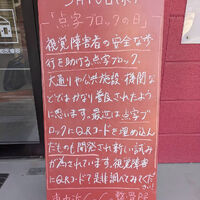 「点字ブロックの日」
視覚障害者の安全な歩
行を助ける点字ブロック、
大通りや公共施設、機関な
どではかなり普及されたよう
に思います。最近は点字ブ
ロックにQRコードを埋め込ん
だものも開発され新しい試み
が為されています。視覚障害
にQRコードで是非調べてみてくだ
さい!